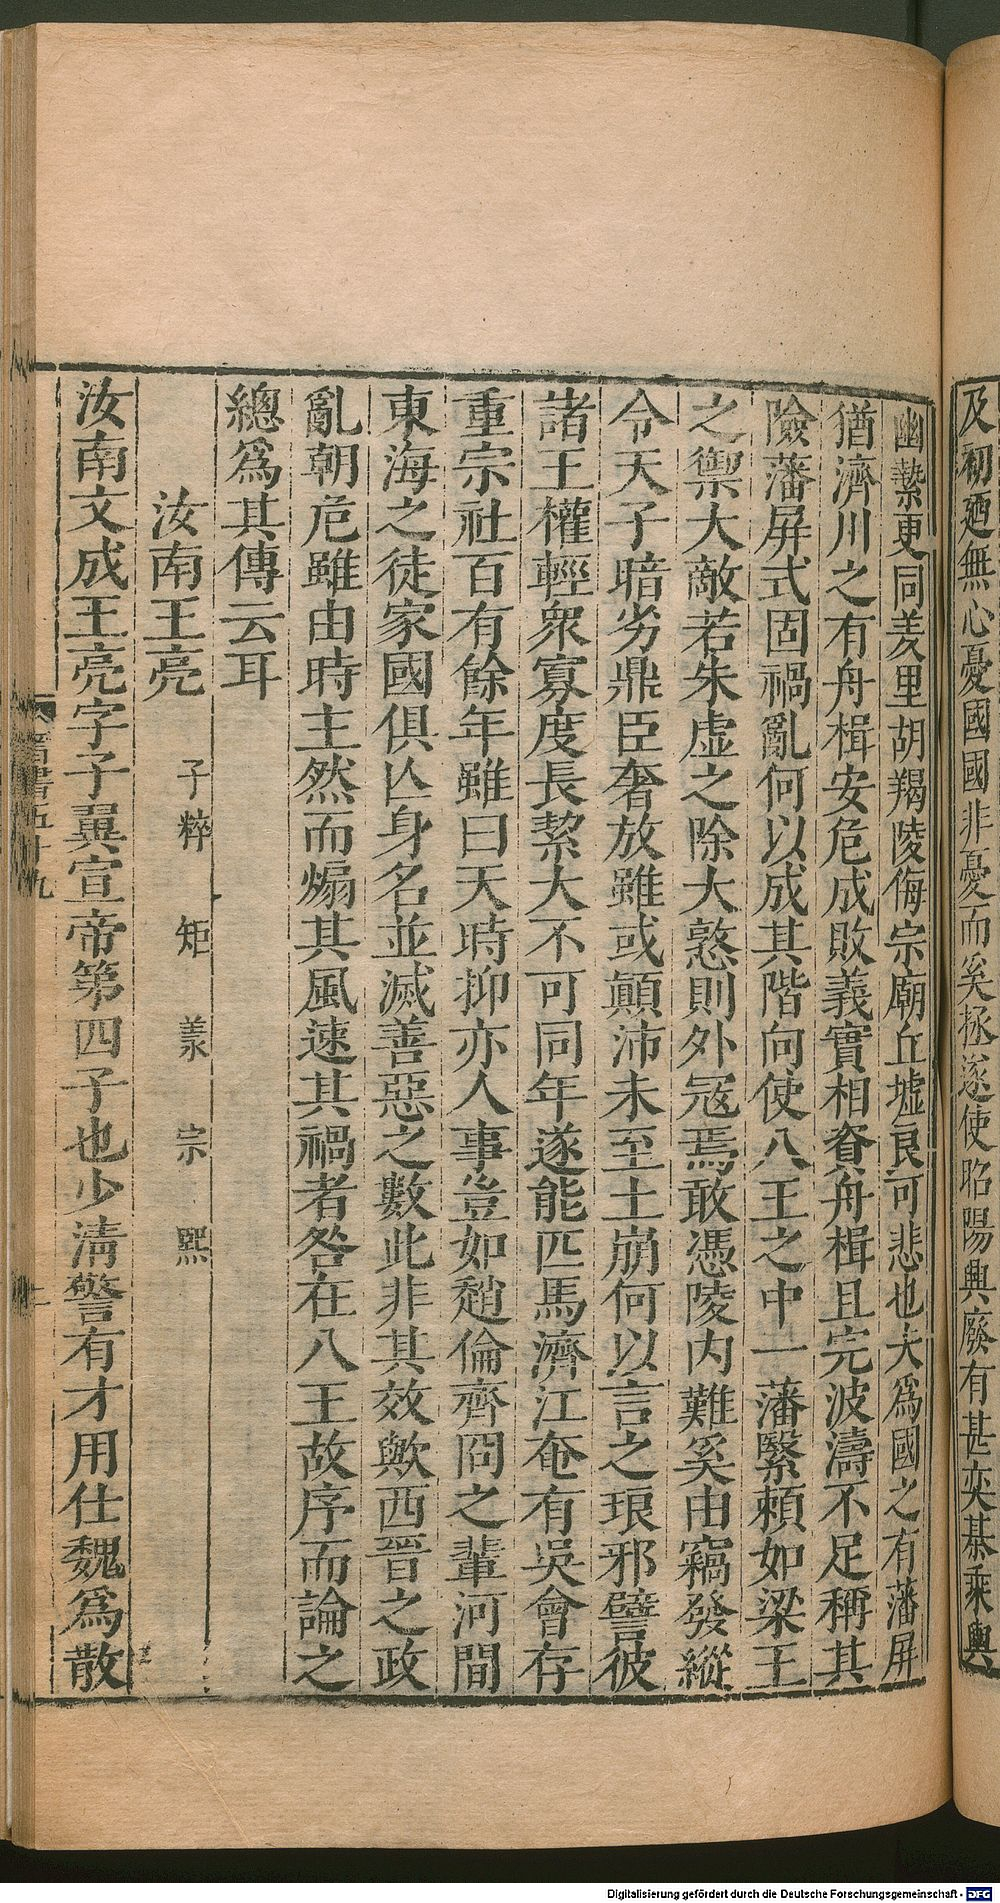 及初迺無心憂國國非憂而奚拯遂使昭陽興廢有甚奕棊乘輿
幽縶更同羑里胡羯陵侮宗廟丘墟良可悲也夫為國之有藩屏
猶濟川之有舟楫安危成敗義實相資舟楫且完波濤不足稱其
險藩屏式固禍亂何以成其階向使八王之中一藩繄賴如梁王
之禦大敵若朱虛之除大憝則外寇焉敢憑陵內難奚由竊發縱
令天子暗劣鼎臣奢放雖或顚沛未至土崩何以言之琅邪譬彼
諸王權輕衆寡度長絜大不可同年遂能匹馬濟江奄有吳會存
重宗社百有餘年雖曰天時抑亦人事豈如趙倫齊冏之輩河間
東海之徒家國俱亾身名並滅善惡之數此非其效歟西晉之政
亂朝危雖由時主然而煽其風速其禍者咎在八王故序而論之
總爲其傳云耳
汝南王亮 子粹 矩 羕 宗 熙
汝南文成王亮字子翼宣帝第四子也少淸警有才用仕魏爲散
晉書五十九
Digitalisierung gefördert durch die Deutsche Forschungsgemeinschaft - DFG